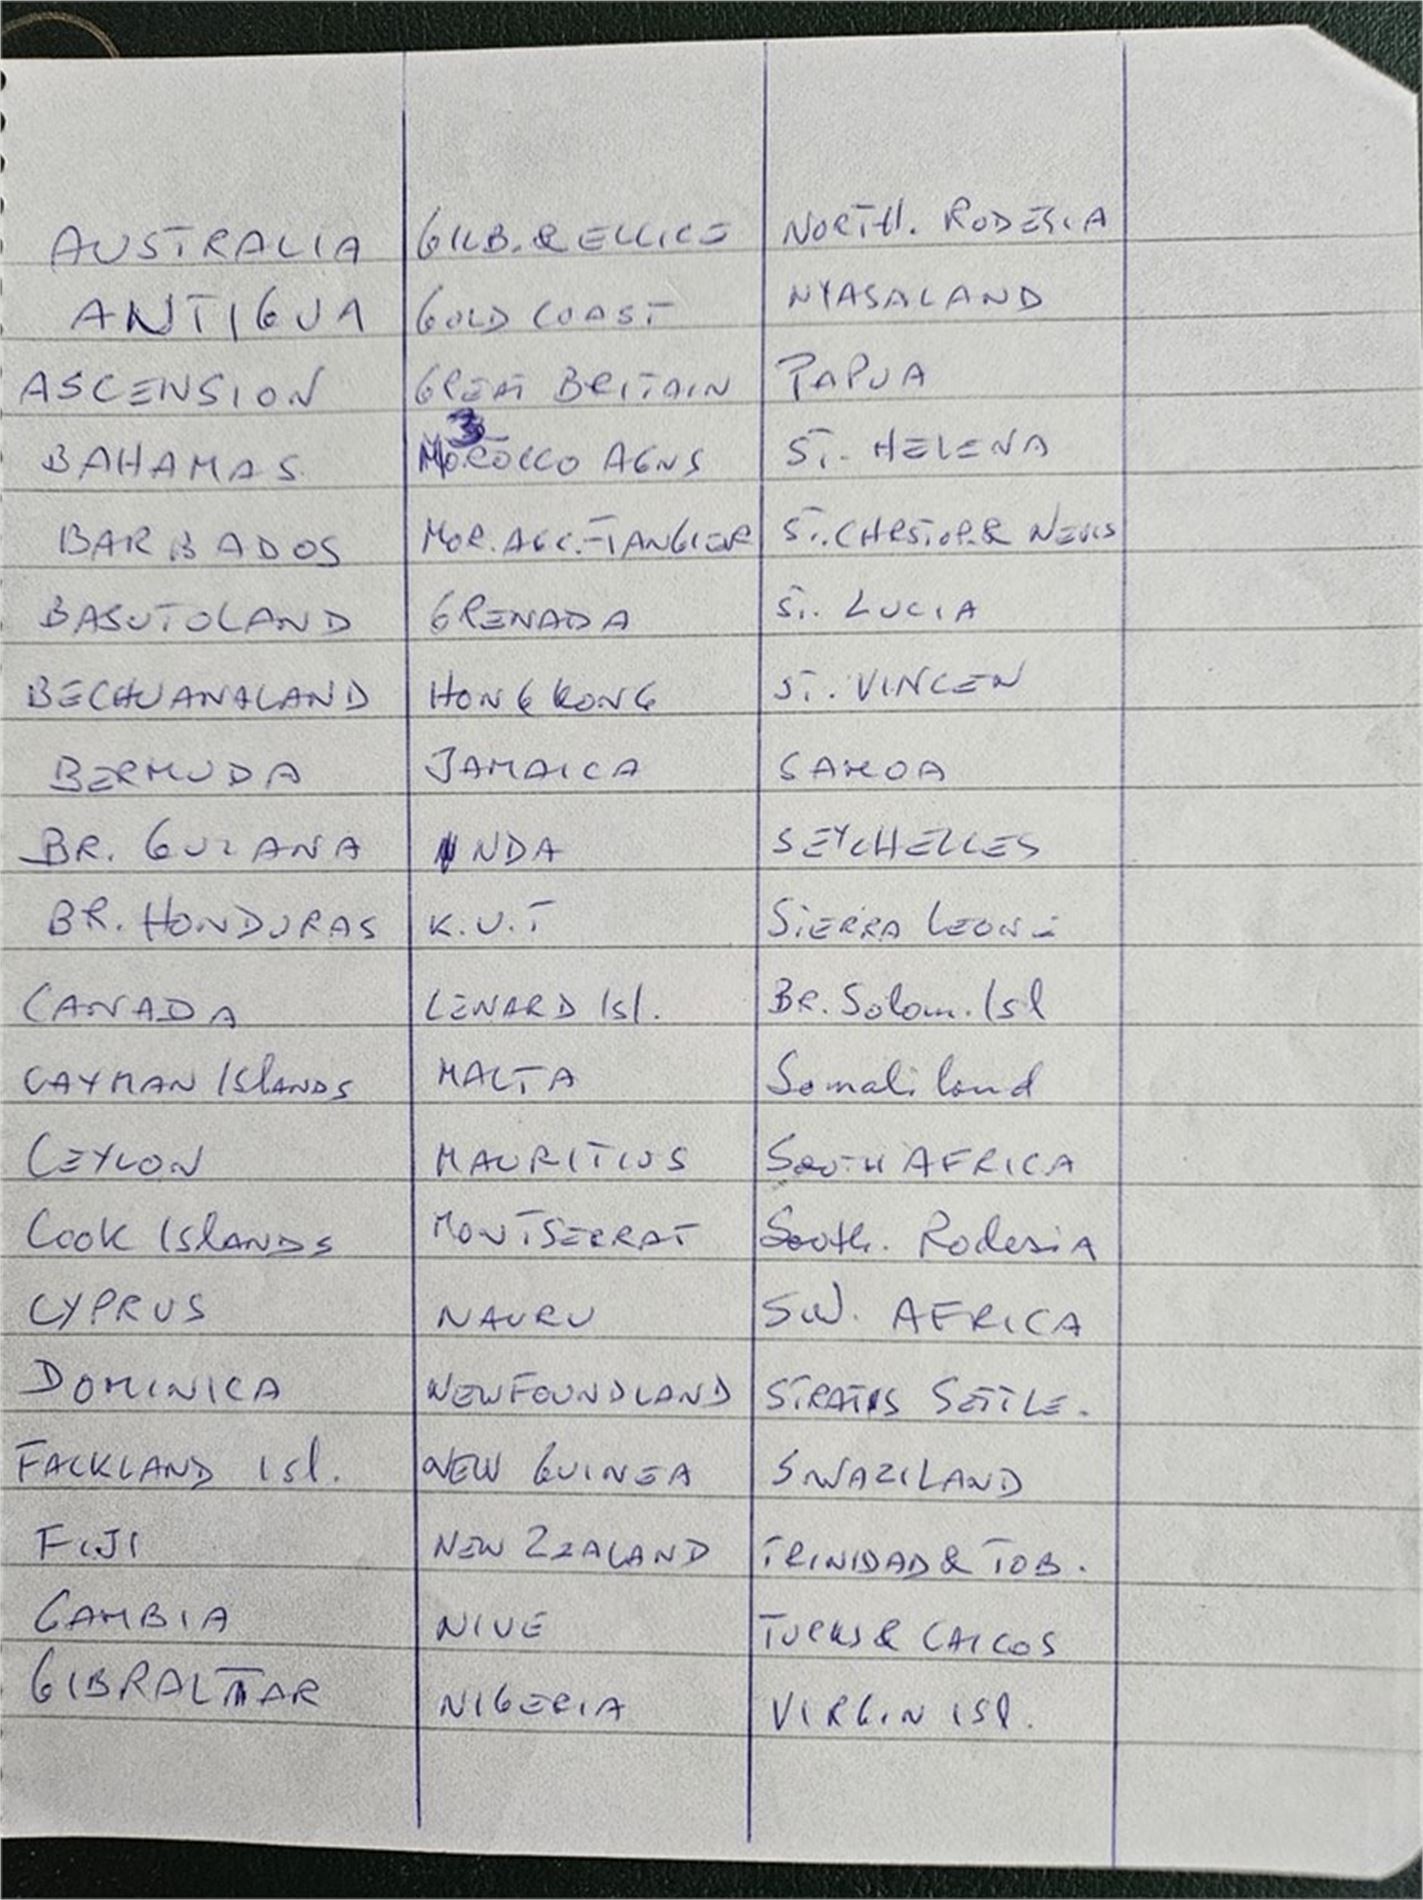 AUSTRALIA
ANTIGUA
ASCENSION
BAHAMAS
BARBADOS
BASUTOLAND
BECHUANALAND
BERMUDA
BR. GUIANA
BR. HONDURAS
CANADA
CAYMAN ISlANDS
CEYLON
COOK ISlANDS
CYPRUS
DOMINICA
FALKLAND Isl.
FIJI
GAMBIA
GIBRALTAR
GILB. & ELLICE
GOLD COAST
GREAT BRITAIN
3
MOROCCO AGNS
MOR. AGC.-TANGIER
GRENADA
HONG KONG
JAMAICA
NDA
K.U.T
LEWARD Isl.
MALTA
MAURITIUS
MONTSERRAT
NAURU
NEWFOUNDLAND
NEW GUINEA
NEW ZEALAND
NIUE
NIGERIA
NORTH. RODESIA
NYASALAND
PAPUA
ST. HELENA
ST. CHRSTOP. & NEVIS
ST. LUCIA
ST. VINCEN
SAMOA
SEYCHELLES
SIERRA LEONE
BR. Solom. Isl
Somaliland
SOUTH AFRICA
South. RodesiA
SW. AFRICA
STRAITS SETTLE.
SWAZILAND
TRINIDAD & TOB.
TURKS & CAICOS
VIRGIN ISl.